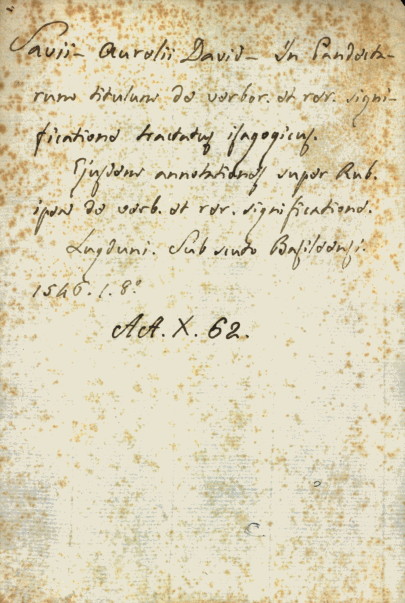 Savii- Aurelii David- In Pandecta-
rum titulum de verbor. et rer. signi-
ficatione tractatus isagogicus.
Ejusdem annotationes super Rub.
ipsa de verb. et rer. significatione.
Lugduni. Sub scuto Basileensi.
1546. 1. 8°
AA. X. 62.